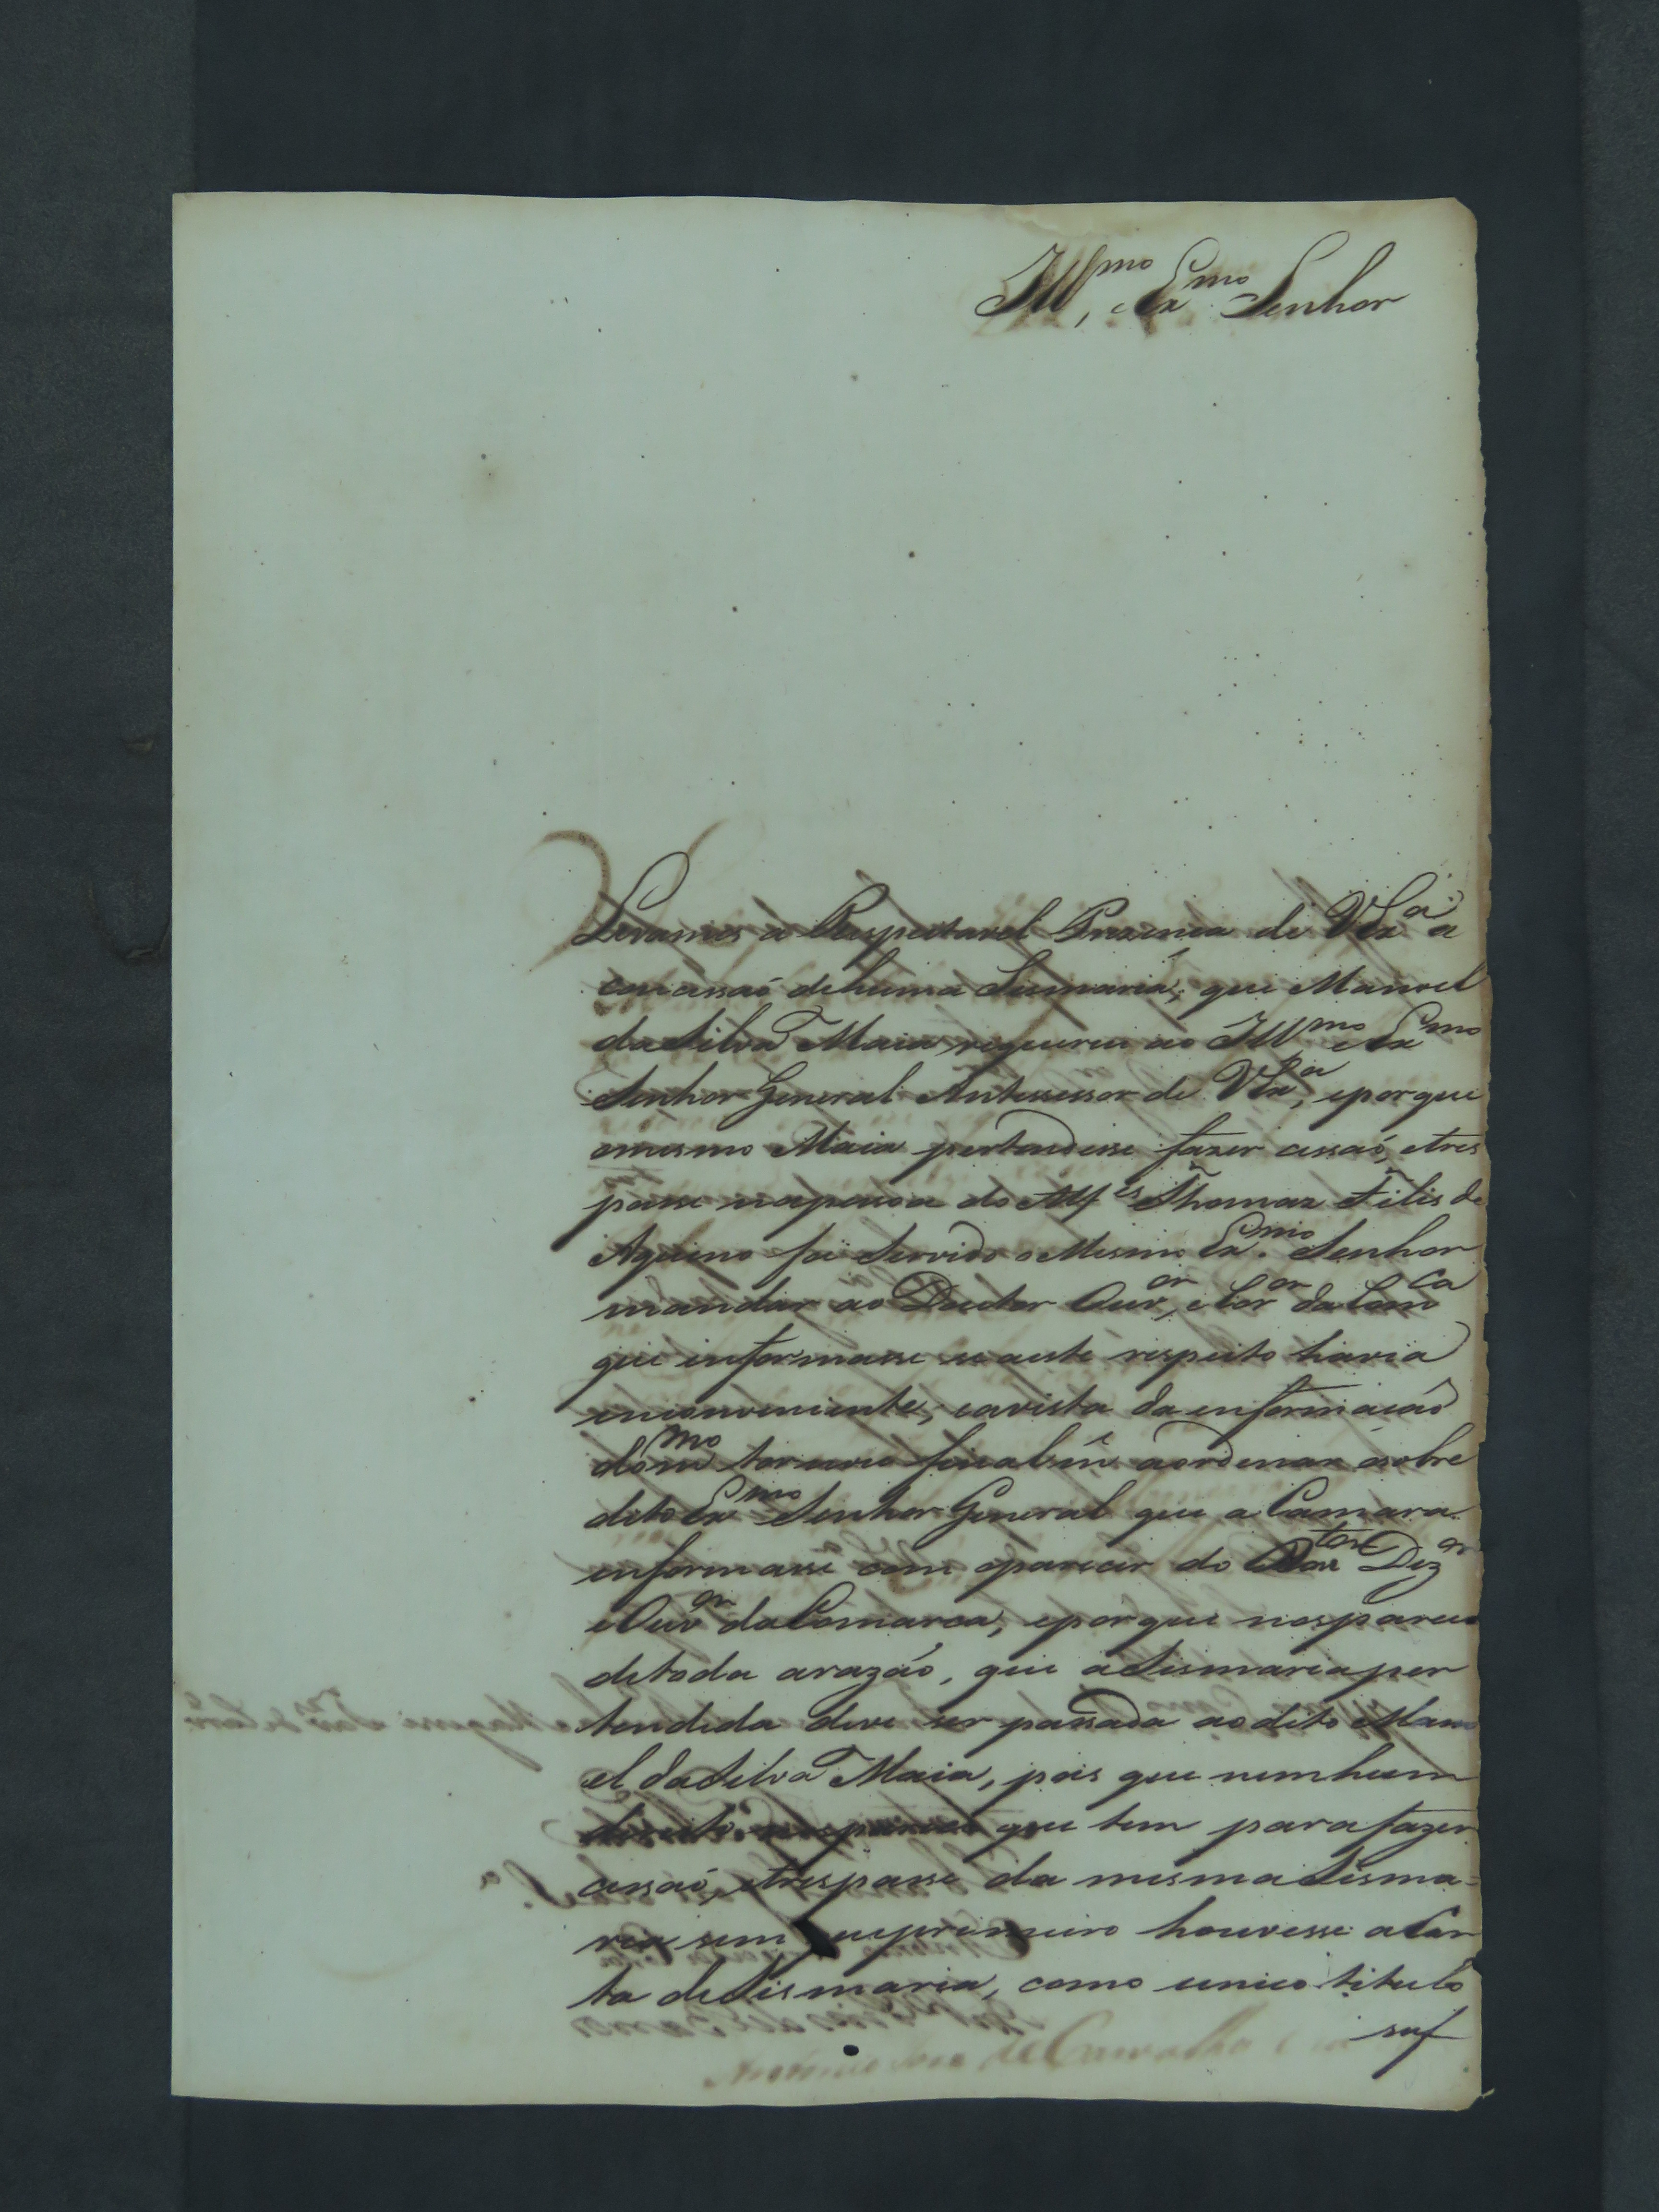 Illmo, e Exmo Senhor
Levamos a Respeitavel Prezença de VExa a
concessaõ dehuma Sismaria, que Manoel
daSilva Maia requereu ao Illmo e Exmo
Senhor General Antessessor de VExa, eporque
omesmo Maia pertendesse fazer cessaõ, etres
passe napessoa do Alfes Thomaz Felis de
Aquino foi Servido o Mesmo Exmo. Senhor
mandar ao Doutor Ouvor, eCor da Comca
que informasse se aeste respeito havia
inconveniente, eavista da informacaõ
domo tornou finalmê aordenar osobre
dito Exmo Senhor General que a Camara
informasse com oparecer do Dor Dezor
eOuvor daComarca, eporque nosparece
detoda arazaõ, que aSismaria per
tendida deve ser passada aodito Mano
el daSilva Maia, pois que nenhum
que tem para fazer
cessaõ, etrespasse da mesma Sisma=
ria sem queprimeiro houvesse aCar
ta deSismaria, como unico titulo
suf